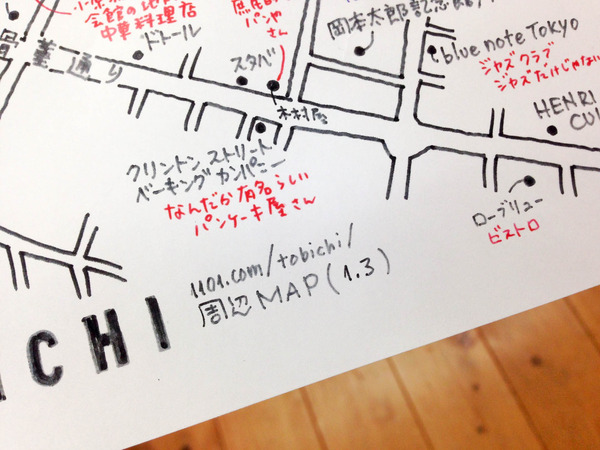 会館の地下
中華料理店
庶民的
パンや
さん
岡本太郎記念館
blue note Tokyo
ジャズクラブ
ジャズだけじゃない
ドトール
骨董通り
スタバ
木村屋
HENRI
CUI
クリントン ストリート
ベーキング カンパニー
なんだか有名らしい
パンケーキ屋さん
ローブリュー
ビストロ
1101.com/tobichi/
周辺MAP(1.3)
ICHI